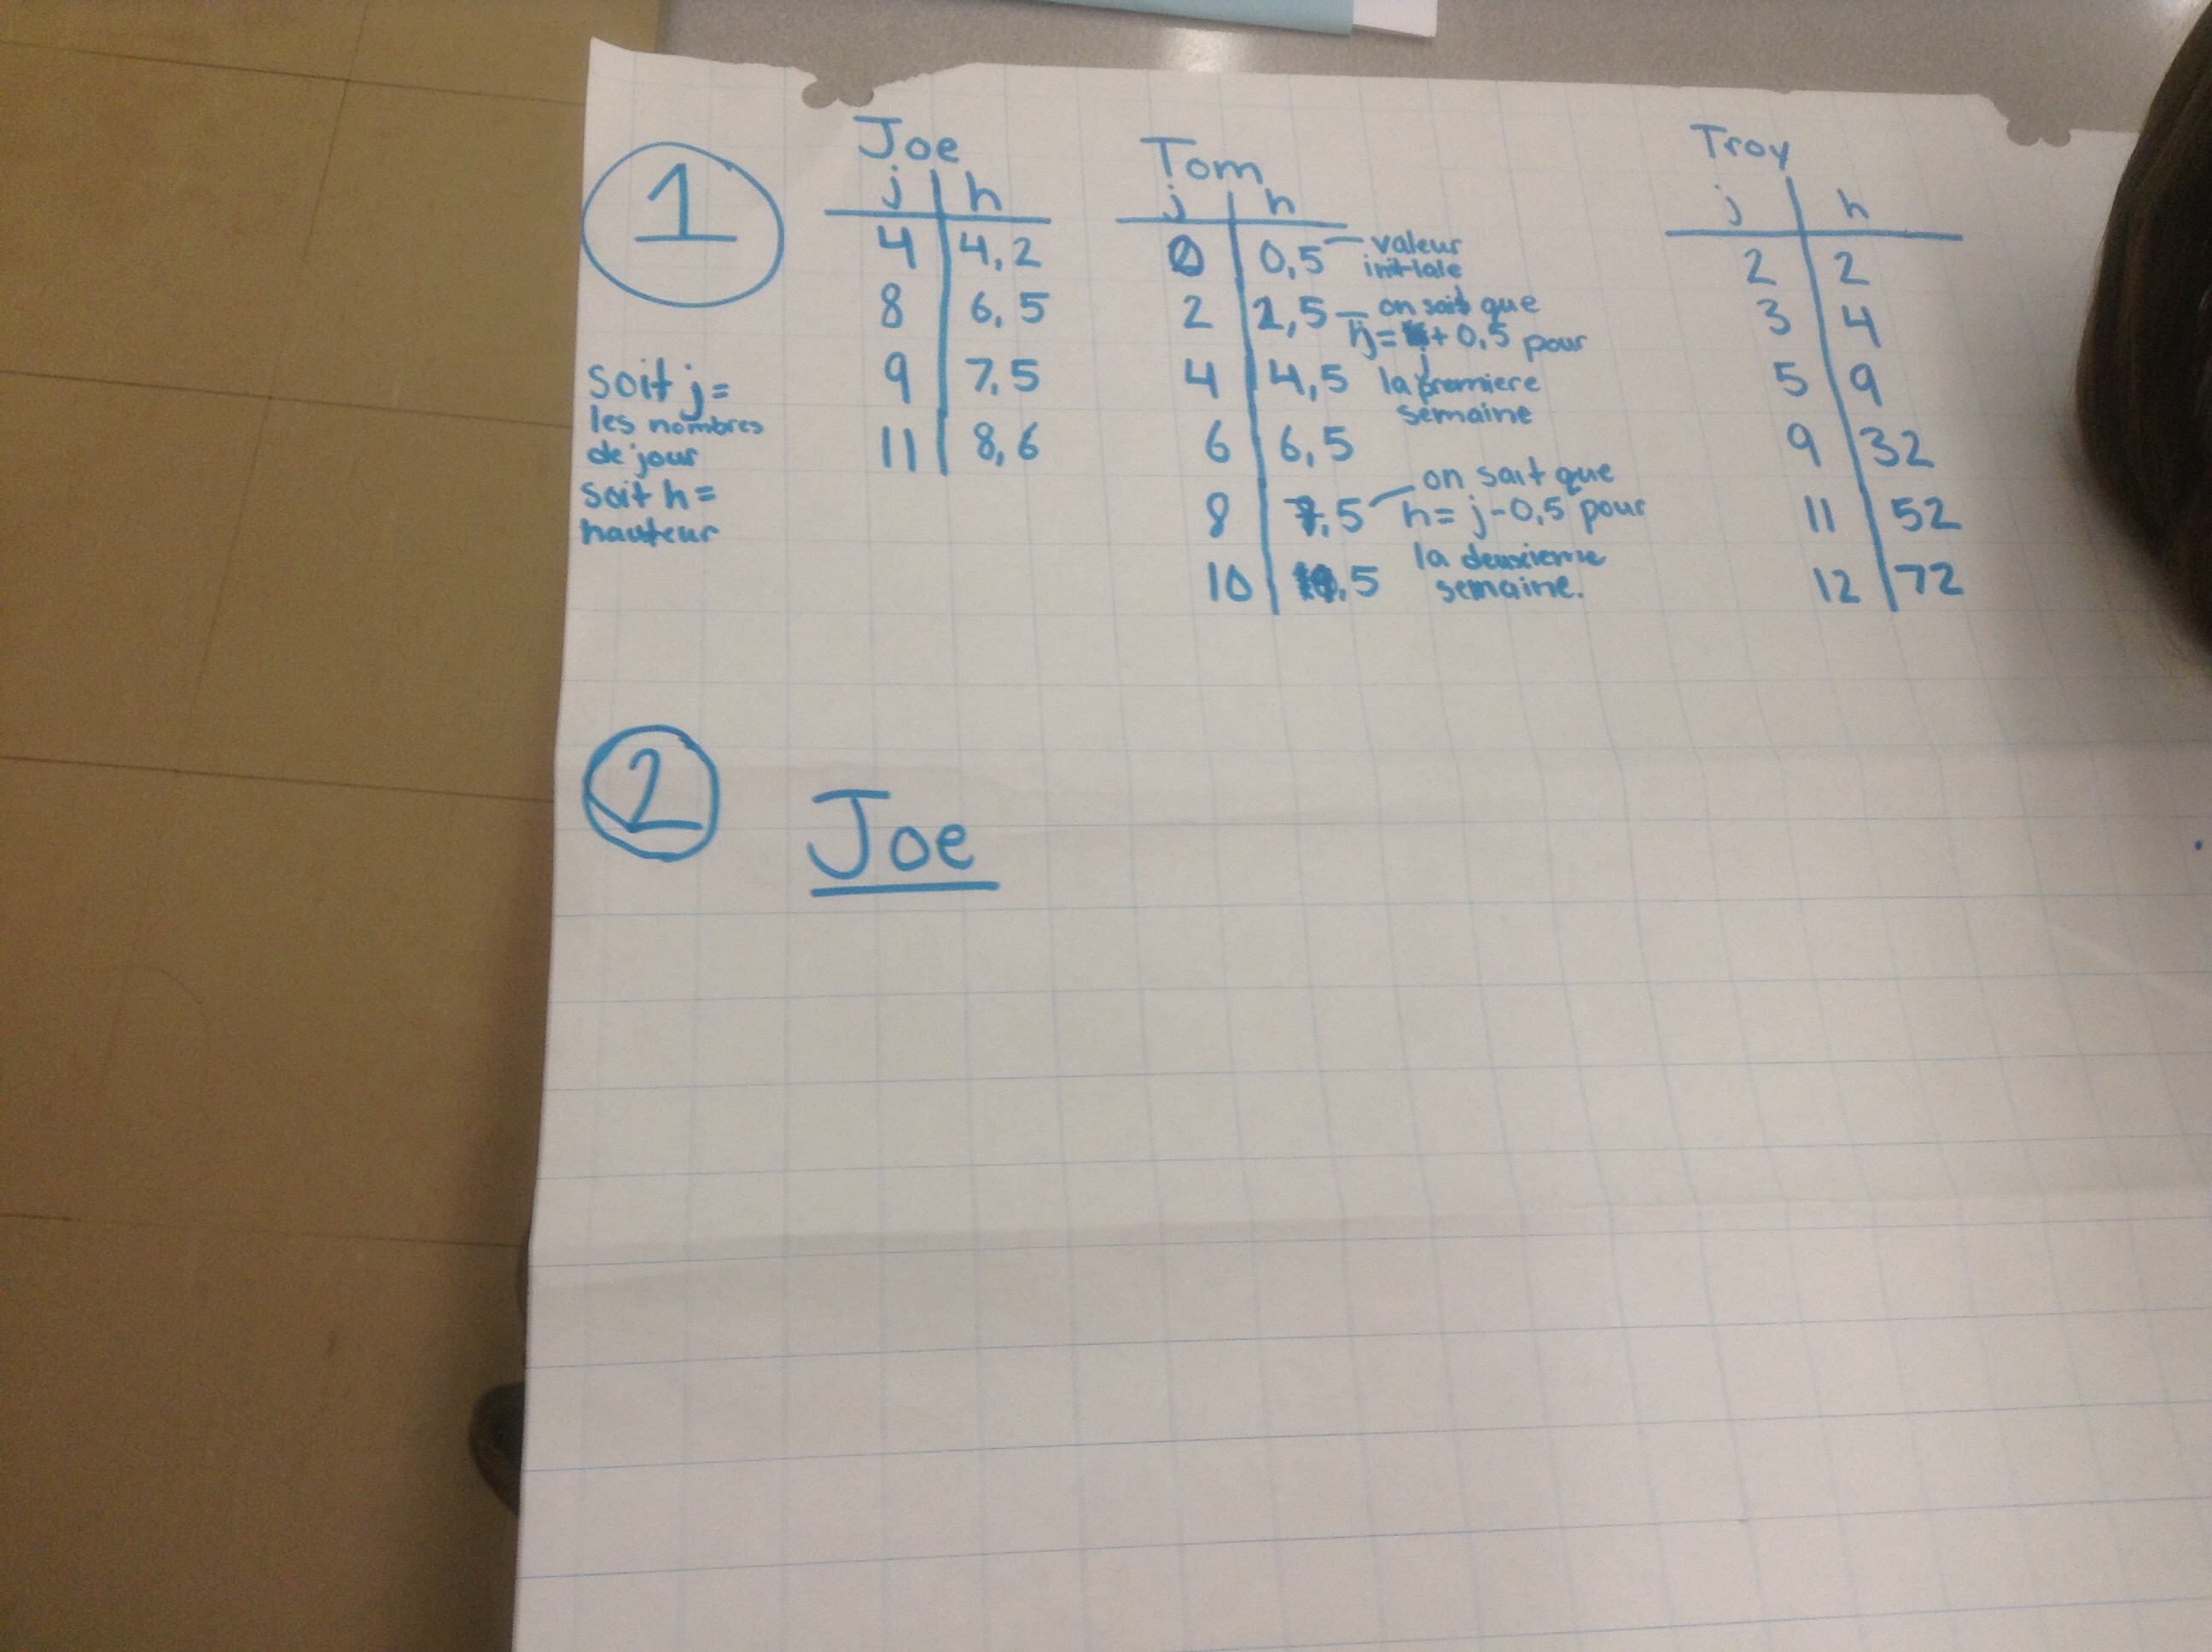 1
Joe
j h
4 4,2
8 6,5
9 7,5
11 8,6
soit j=
les nombres
de jour
soit h=
hauteur
Tom
j h
0 0,5 valeur
initiale
2 2,5 on sait que
+ 0,5 pour
4 4,5 la premiere
semaine
6 6,5
on sait que
8 7,5 h= j-0,5 pour
la deuxieme
10 ,5 semaine.
Troy
j h
2 2
3 4
5 9
9 32
11 52
12 72
2
Joe